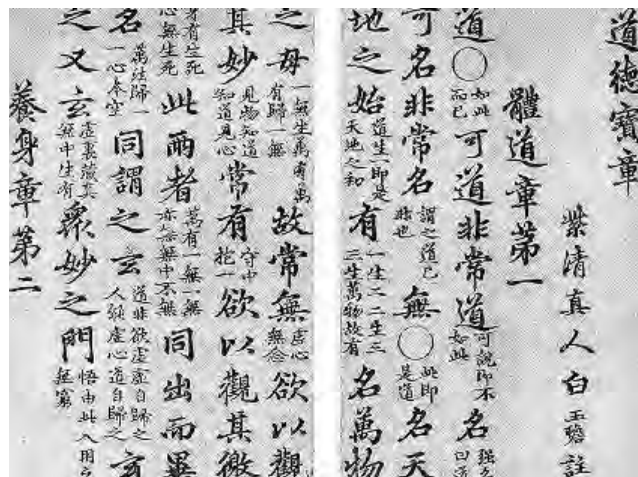 道德寶章
紫清真人白玉蟾註
體道章第一
道○如此而已可道非常道可說即不如此名强名曰道
可名非常名謂之道已非也無○此即是道名天
地之始道生一即是天地之和有一生二二生三三生萬物故有名萬物
之母一無生萬有萬有歸一無故常無虛心無念欲以觀
其妙見物知道知道見心常有守中抱一欲以觀其徼
者有生死心無生死此兩者萬有一無一無亦無無中不無同出而異
名萬法歸一一心本空同謂之玄道非欲虛虛自歸之人能虛心道自歸之玄
之又玄虛裏藏真無中生有衆妙之門悟由此入用之無窮
養身章第二